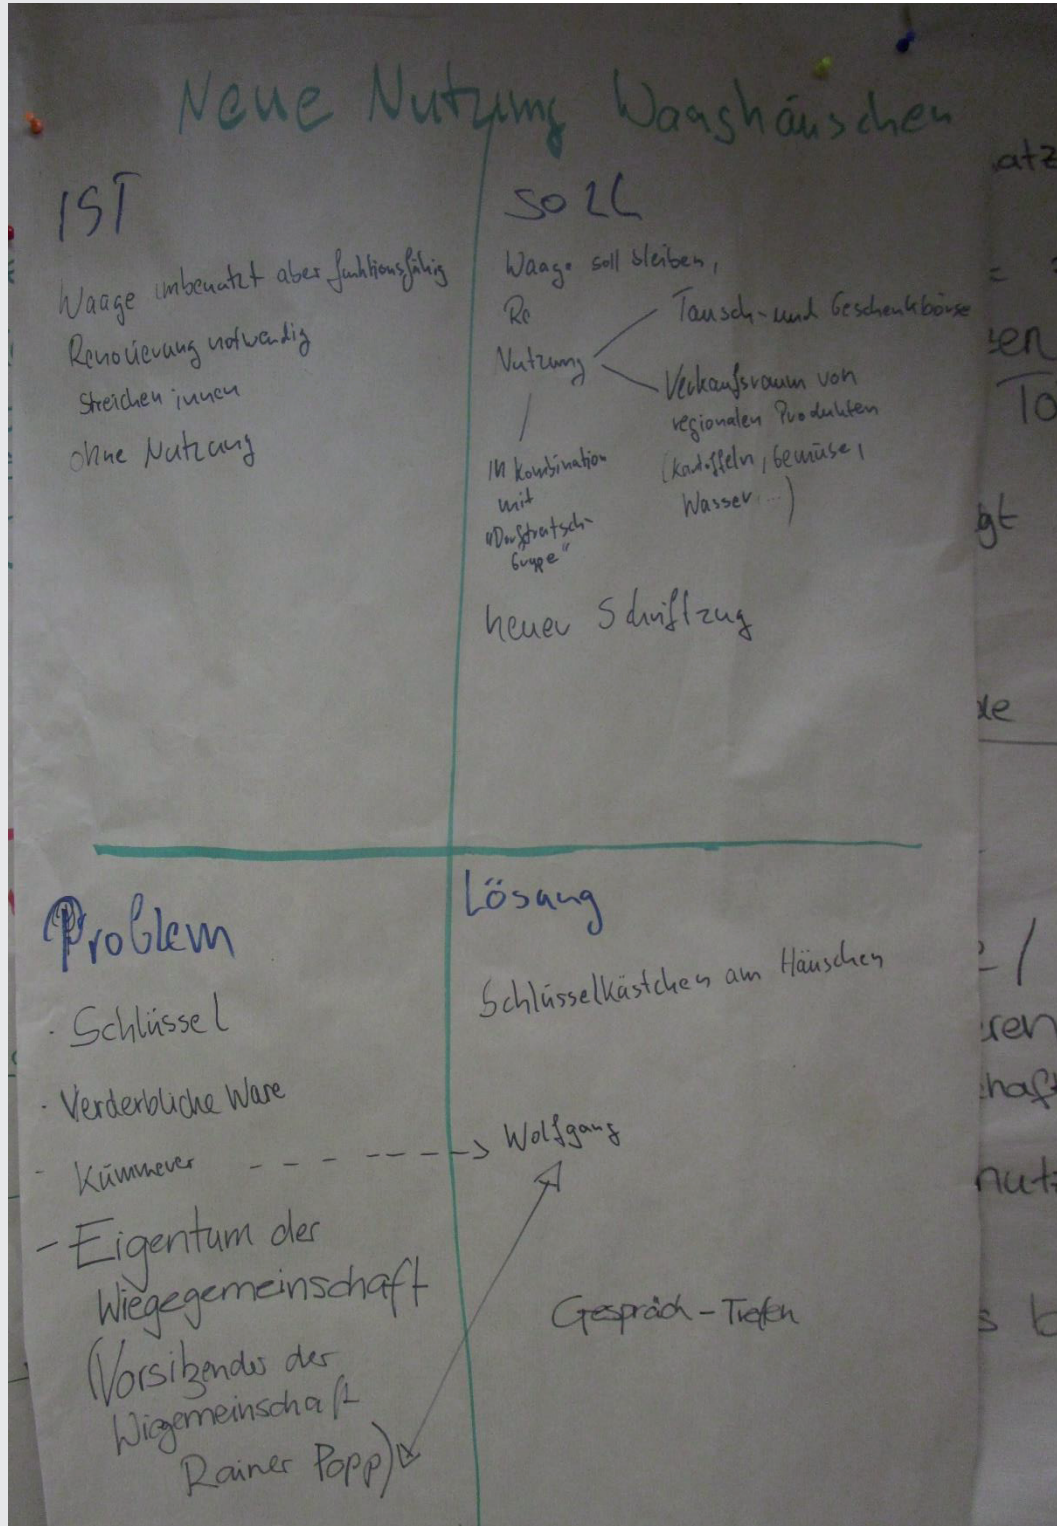 Neue Nutzung Waaghäuschen
IST
Waage unbenutzt aber funktionsfähig
Renovierung notwendig
Streichen innen
ohne Nutzung
SOLL
Waage soll bleiben,
Re
Nutzung
Tausch- und Geschenkbörse
Verkaufsraum von
regionalen Produkten
(Kartoffeln, Gemüse,
Wasser ...)
in Kombination
mit
"Dorftratsch-
Gruppe"
neuer Schriftzug
Problem
· Schlüssel
· Verderbliche Ware
- Kümmerer
- Eigentum der
Wiegegemeinschaft
(Vorsitzender der
Wiegemeinschaft
Rainer Popp)
Lösung
Schlüsselkästchen am Häuschen
Wolfgang
Gespräch - Treffen
atz
=
sen
To
gt
de
/
ren
haft
nutz
s b